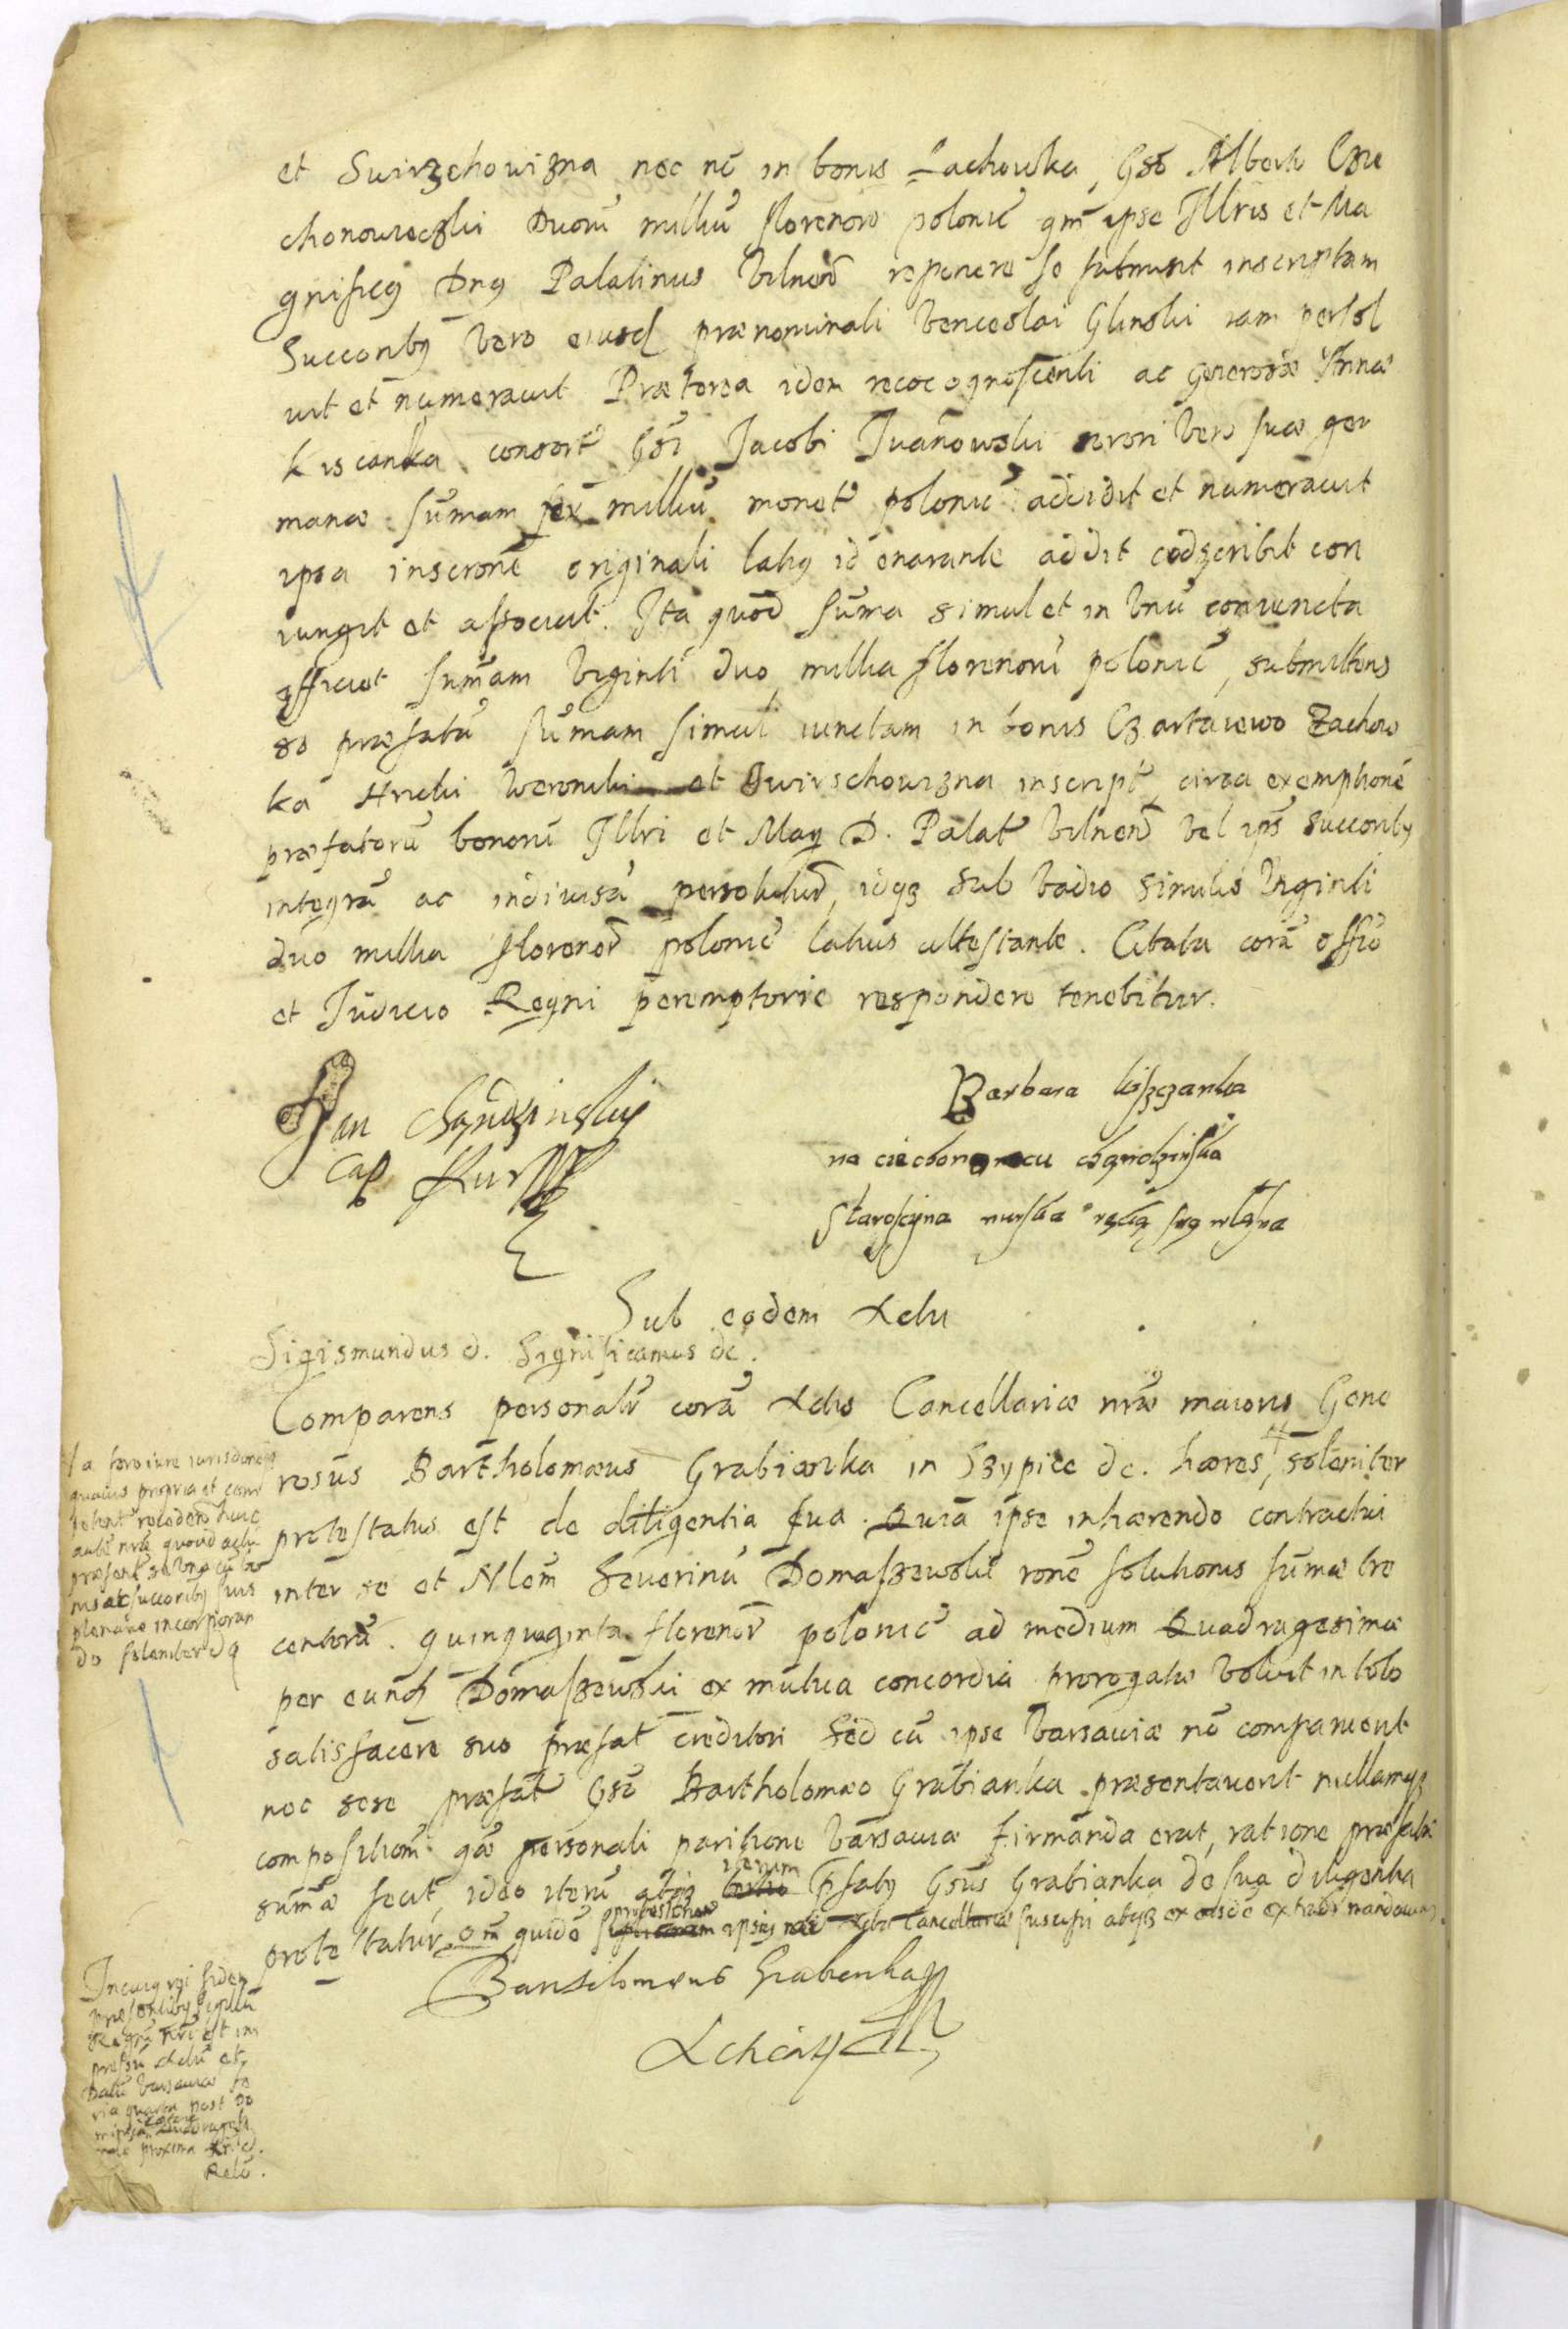 et Suirzchowizna nec nō in bonis Lachowka, Gsō Alberto Czie
chonowieczki Duorū milliū florenorū polonic̄ qm̄ ipse Illris et Ma
gnificq Dnq Palatinus Vilnen̄ reponere se submisit inscriptam
Succoribq vero eiusd prænominati Venceslai Glinski iam persol
uit et numerauit Præterea idem recocognoscenti ac Generosæ Annæ
Kiscanka consort Gsī Jacobi Iuanowski sorori vero suæ ger
manæ sūmam sex milliū monet polonic̄ addidit et numerauit
ipsa inscronē originali latiq id enarante addit coadscribit con
iungit et associat. Ita quod sūma simul et in vnū coniuncta
efficiet sūmam viginti duo millia florenorū polonic̄, submittens
se præfatā sūmam simul iunctam in bonis Czartaiewo Zachow
ka Hrucki Woronuki et Swirschowizna inscript circa exemptionē
præfatorū bonorū Illri et Mag D. Palat Vilnen̄ vel ips succoribq
integrā ac indiuisā persoluturā, idqz sub vadio similis viginti
duo millia florenor̄ polonic̄ latius attestante. Citata corā officio
et Iudicio Regni peremptorie respondere tenebitur.
Jan Chądzinsky
Cap Nursk
Barbara kiszczanka
na ciechonowcu chądzinska
Staroscina nurska ręką swą własna
Sub eodem Actu
Sigismundus d. Significamus dc.
Comparens personalr̄ corā Actis Cancellariæ nræ maioris Gene
rosus Bartholomæus Grabianka in Szypice dc. hæres, soleniter
protestatus est de diligentia sua. Quia ipse inhærendo contractui
inter se et Nlem Seuerinū Domaszewski ronē solutionis sūmæ tre
centorū quinquaginta florenor̄ polonic̄ ad medium Quadragesimæ
per eund Domaszewski ex mutua concordia prorogatæ voluit in toto
satisfacere suo præfat creditori Sed cū ipse Varsauiæ nō comparuerit
nec sese præfat Gsō Bartholomæo Grabianka præsentauerit nullamqz
compositionem qæ personali paritione Varsauiæ firmanda erat, ratione præfatæ
sūmæ fecit, ideo iterū atqz iterum pfatq Gsus Grabianka de sua diligentia
protestatur, qm̄ quidē protestationē ipsius suscepi atqz ex eisdē extradi mandauimus.
Bartolomeus Grabienka
Ia foro iure iurisdone
quauis propria et com
petent recedens huic
præsent se bnq cū bo
nis ac succoribq suis
plenarie incorporan
do soleniter dq
In cuiq rei fidem
præsentibq sigillū
Regni nrī est im
pressū Actū et
Datū Varsauiæ fe
ria quarta post Do
minicā Quadragesi
male proxima
Relō.